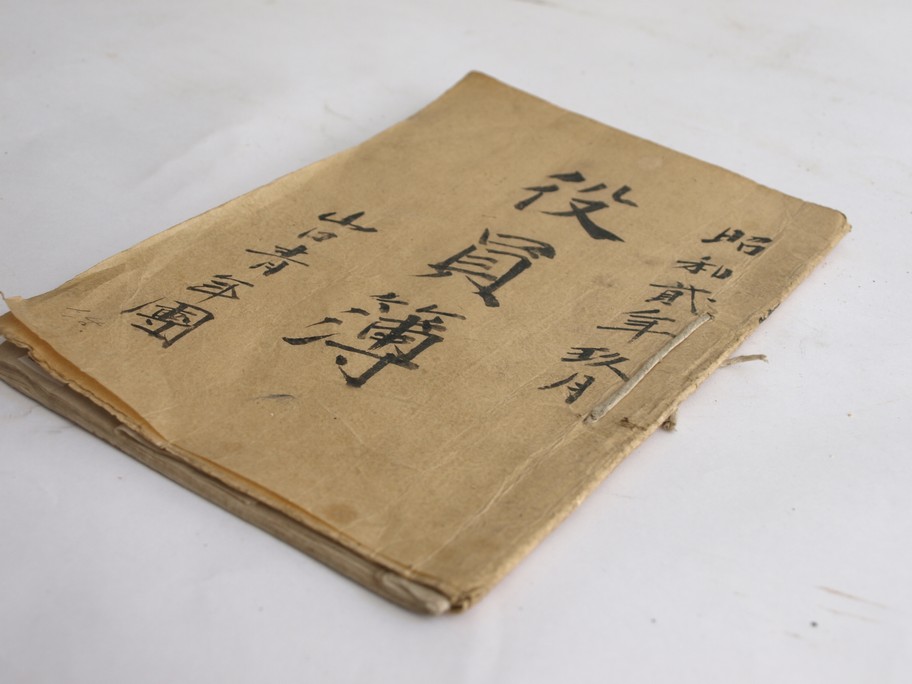 昭和貳年玖月
役員簿
岩青年團